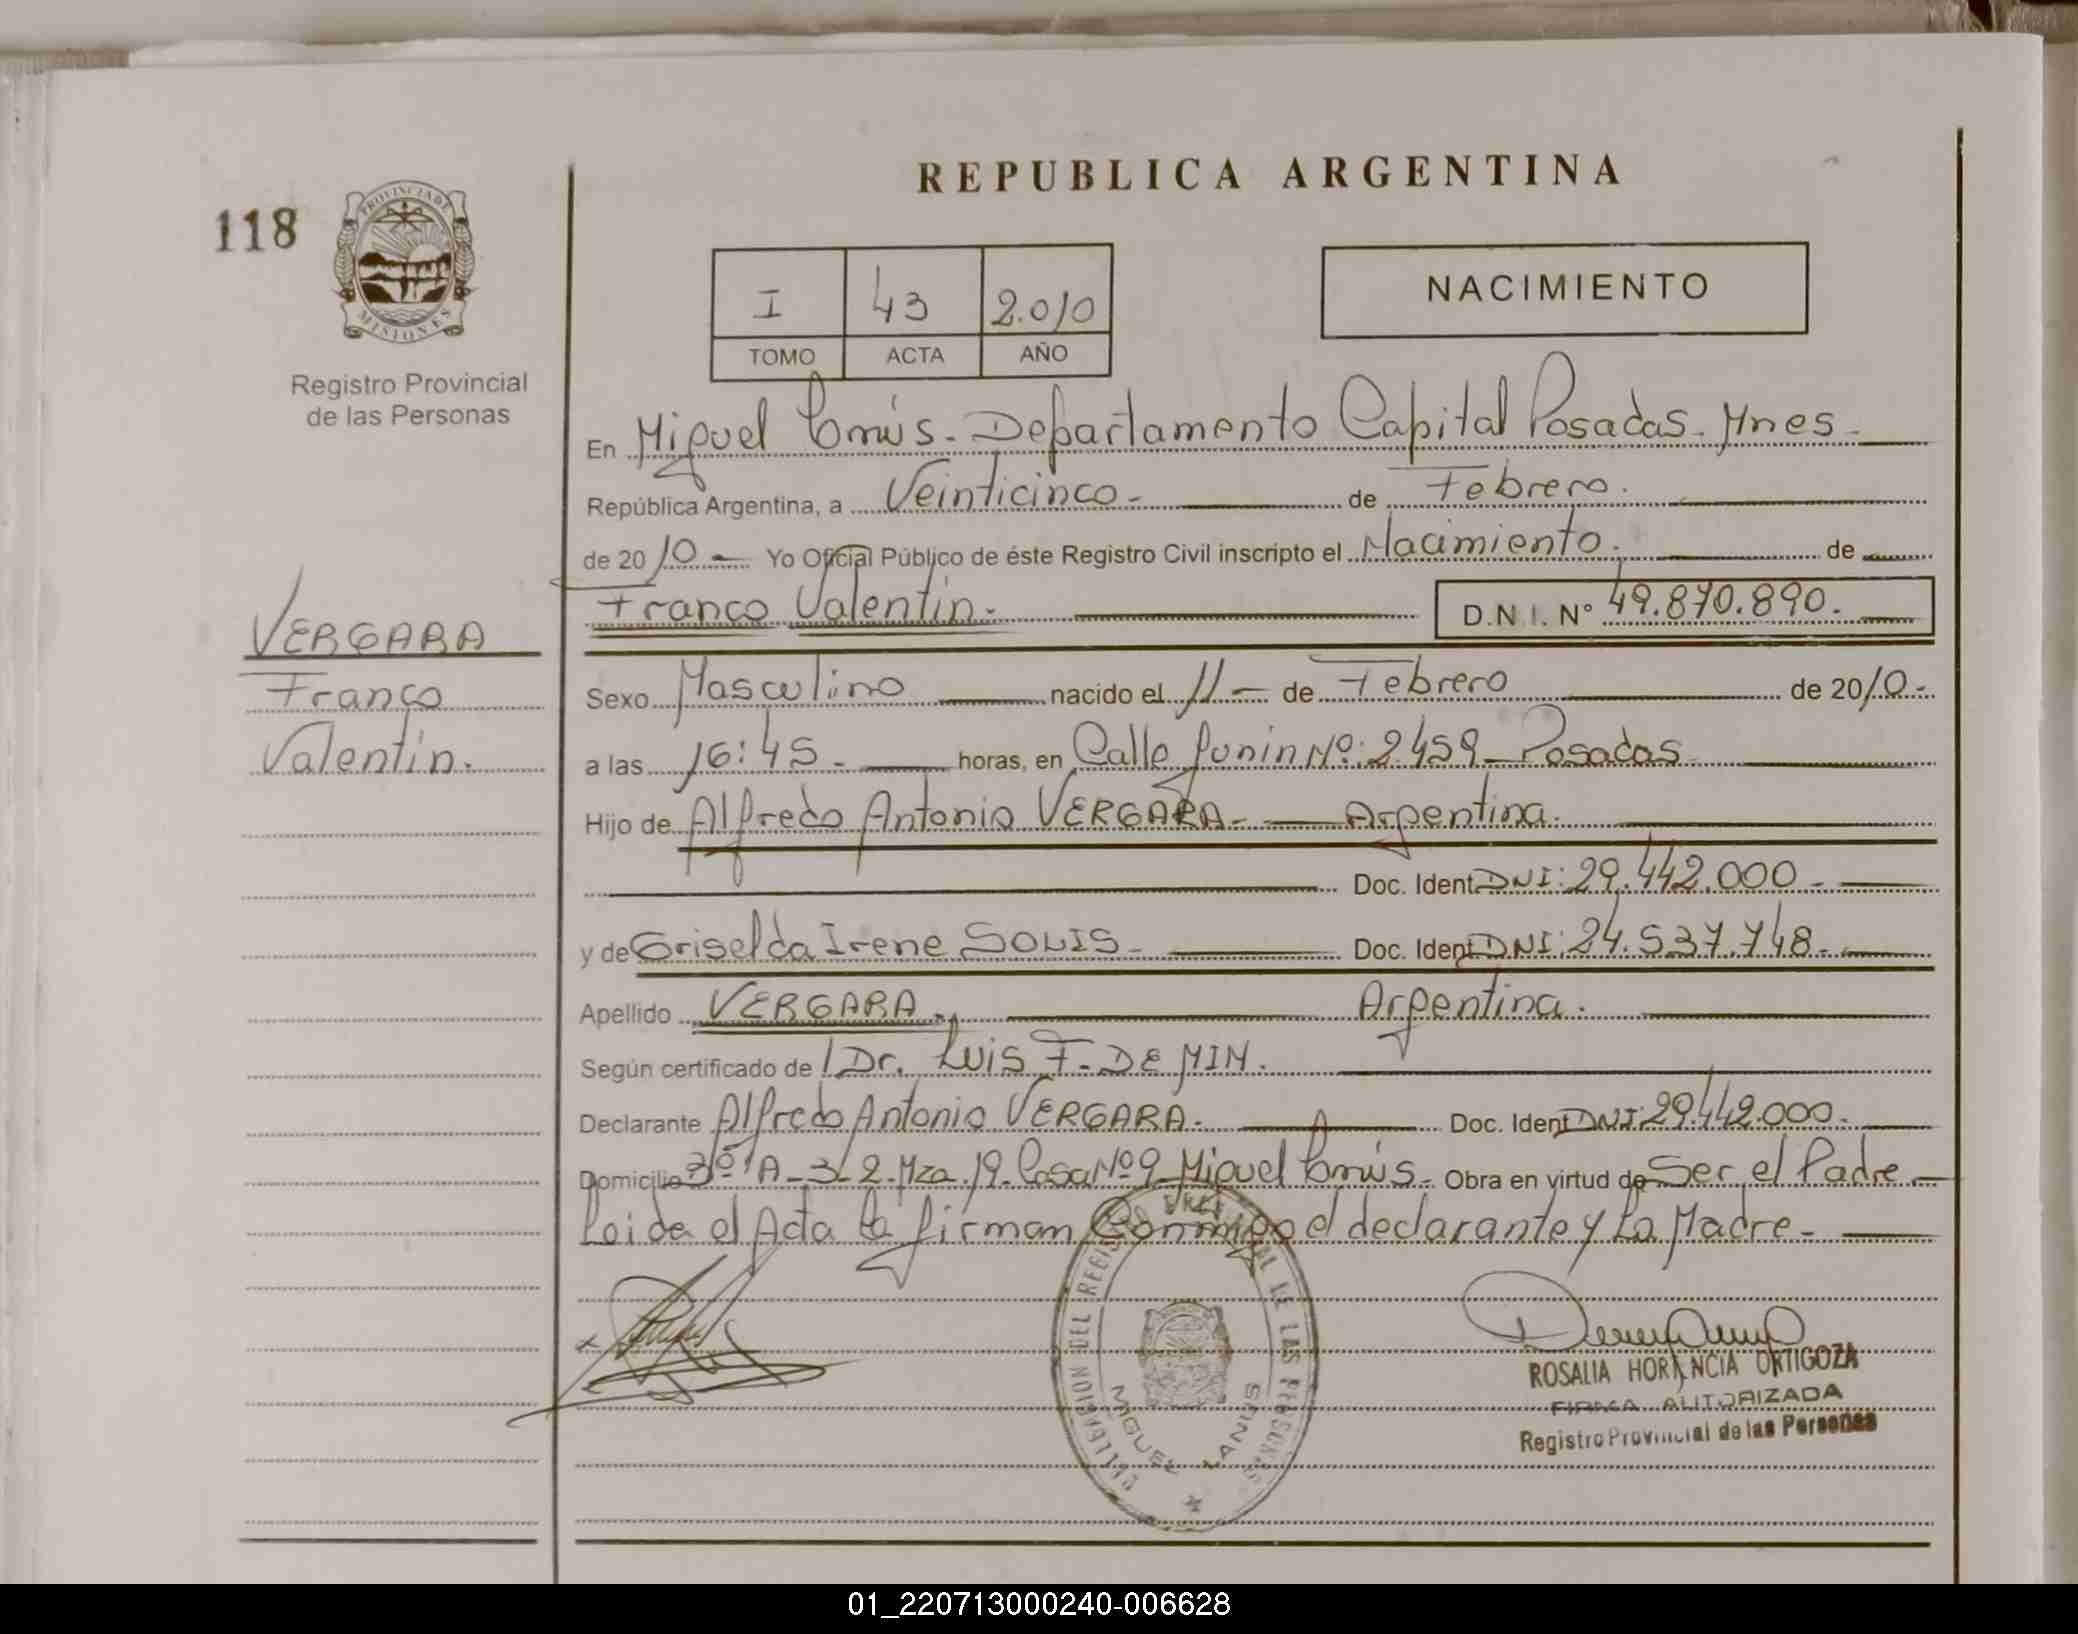 REPUBLICA ARGENTINA
118
PROVINCIA DE
MISIONES
Registro Provincial
de las Personas
I 43 2.010
TOMO ACTA AÑO
NACIMIENTO
En Miguel Lanús. Departamento Capital Posadas. Mnes
República Argentina, a Veinticinco- de Febrero.
de 2010 Yo Oficial Público de éste Registro Civil inscripto el Nacimiento. de
Franco Valentin. D.N.I. N° 49.870.890.
VERGARA
Franco
Valentin.
Sexo Masculino nacido el 11- de Febrero de 2010.
a las 16:45- horas, en Calle Junin Nº: 2459- Posadas
Hijo de Alfredo Antonio VERGARA- Argentina.
Doc. Ident DNI: 29.442.000-
y de Griselda Irene SOLIS- Doc. Ident DNI: 24.537.748-
Apellido VERGARA. Argentina.
Según certificado de Dr. Luis F. DE MIN.
Declarante Alfredo Antonio VERGARA. Doc. Ident DNI: 29.442.000.
Domicilio Mza. 19. Casa Nº 9 Miguel Lanús. Obra en virtud de Ser el Padre
Leida el Acta la firman Conmigo el declarante y La Madre-
DELEGACION DEL REGISTRO PROVINCIAL DE LAS PERSONAS
MIGUEL LANUS
ROSALIA HORTENCIA ORTIGOZA
FIRMA AUTORIZADA
Registro Provincial de las Personas
01_220713000240-006628